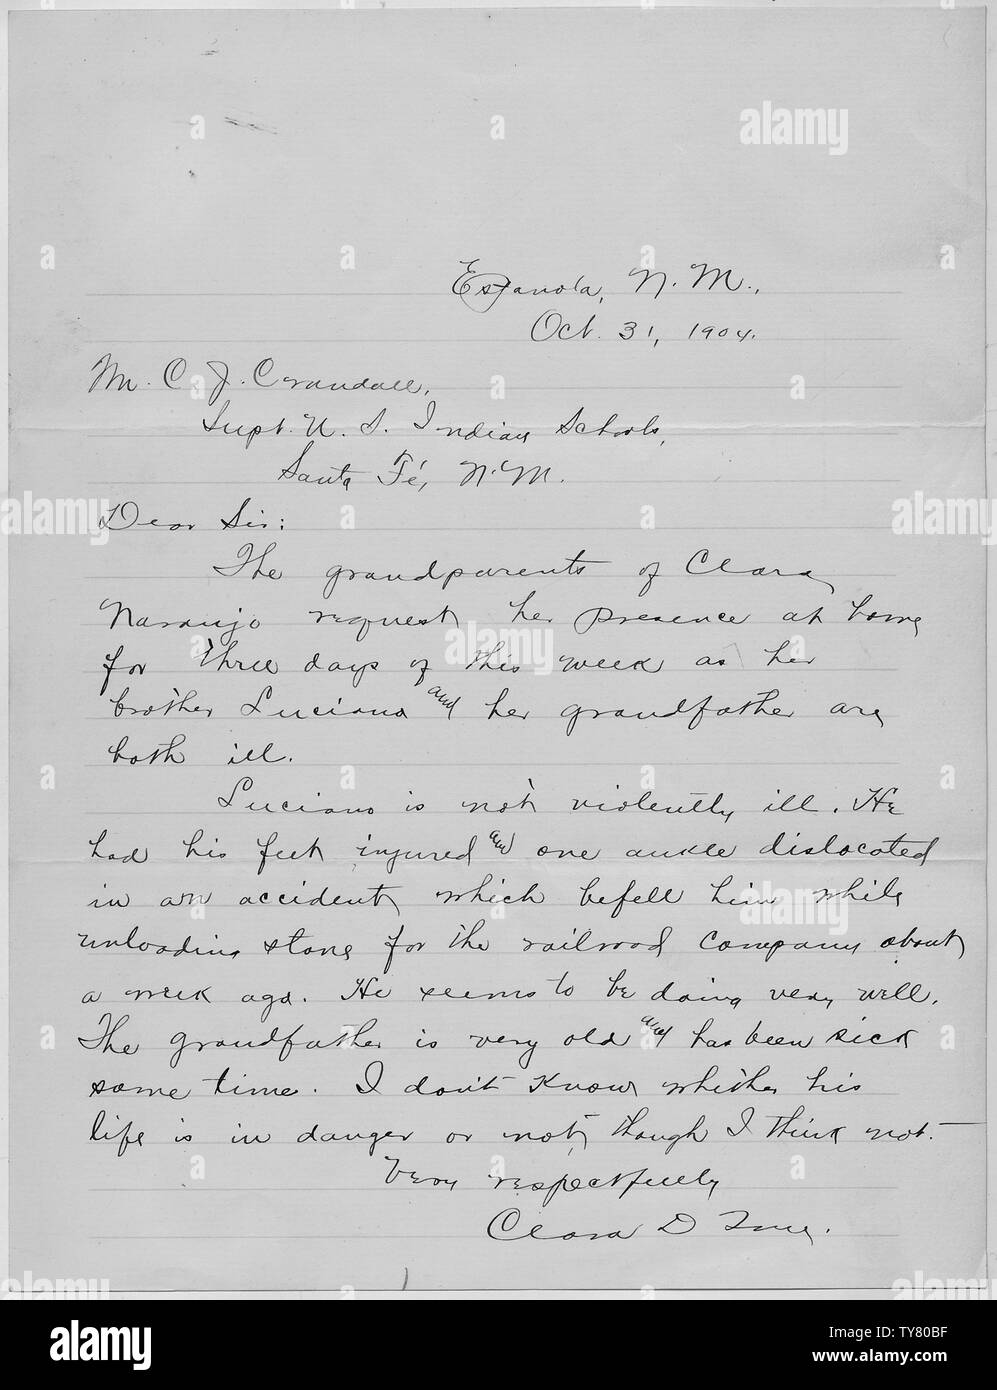 Espanola, N. M.,
Oct. 31, 1904.
Mr. C. J. Crandall,
Supt. U. S. Indian Schools,
Santa Fé, N. M.
Dear Sir:
The grandparents of Clara
Naranjo request her presence at home
for three days of this week as her
brother Luciano and her grandfather are
both ill.
Luciano is not violently ill. He
had his feet injured and one ankle dislocated
in an accident which befell him while
unloading stone for the railroad company about
a week ago. He seems to be doing very well.
The grandfather is very old and has been sick
some time. I don't know whether his
life is in danger or not, though I think not.
Very respectfully
Clara D True.
alamy
TY80BF
www.alamy.com